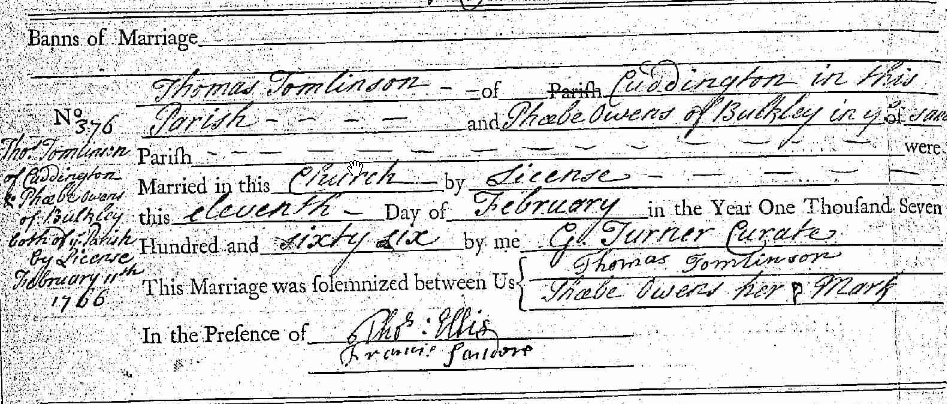 Banns of Marriage
Thomas Tomlinson - - of Parish Cuddington in this
No 376
Parish - - - - and Phœbe Owens of Bulkley in ye of same
Parish - - - - - - - - - - were
Married in this Church by License - - - -
this eleventh - Day of February in the Year One Thousand Seven
Hundred and sixty six by me G. Turner Curate
This Marriage was solemnized between Us { Thomas Tomlinson
Phœbe Owens her P Mark
In the Presence of Thos: Ellis
Francis
Thos. Tomlinson
of Cuddington
& Phœbe Owens
of Bulkley
both of ye Parish
by License
February 11th
1766